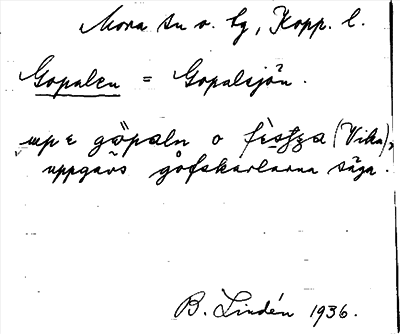 Mora sn o. hg, Kopp. l.
Gopalen = Gopalsjön.
"up ε gö̀paln o fèsfza (Vika)",
uppgavs gåfskarlarna säga.
B. Lindén 1936.